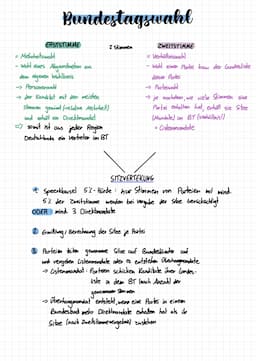 Bundestagswahl
ERSTSTIMME
2 Stimmen
ZWEITSTIMME
= Mehrheitswahl
- Wahl eines Abgeordneten aus
dem eigenen Wahlkreis
→ Personenwahl
→ der Kandidat mit den meisten
Stimmen gewinnt (relative Mehrheit)
und erhält ein Direktmandat
=> somit ist aus jeder Region
Deutschlands ein Vertreter im BT
= Verhältniswahl
- Wahl einer Partei bzw. der Landesliste
dieser Partei
→ Parteiwahl
→ je nachdem, wie viele Stimmen eine
Partei erhalten hat, erhält sie Sitze
(Mandate) im BT
= Listenmandate
SITZVERTEILUNG
Sperrklausel 5%-Hürde: Nur Stimmen von Parteien mit mind.
5% der Zweitstimme werden bei Vergabe der Sitze berücksichtigt
ODER mind. 3 Direktmandate
2 Ermittlung / Berechnung der Sitze je Partei
3 Parteien teilen gewonnene Sitze auf Bundesländer auf
und vergeben Listenmandate oder es entstehen Überhangmandate
→ Listenmandat: Parteien schicken Kandidaten ihrer Landes-
liste in den BT (nach Anzahl der
gewonnenen Stimmen
→ Überhangmandat entsteht, wenn eine Partei in einem
Bundesland mehr Direktmandate erhalten hat als ihr
Sitze (nach Zweitstimmenvergabe) zustehen